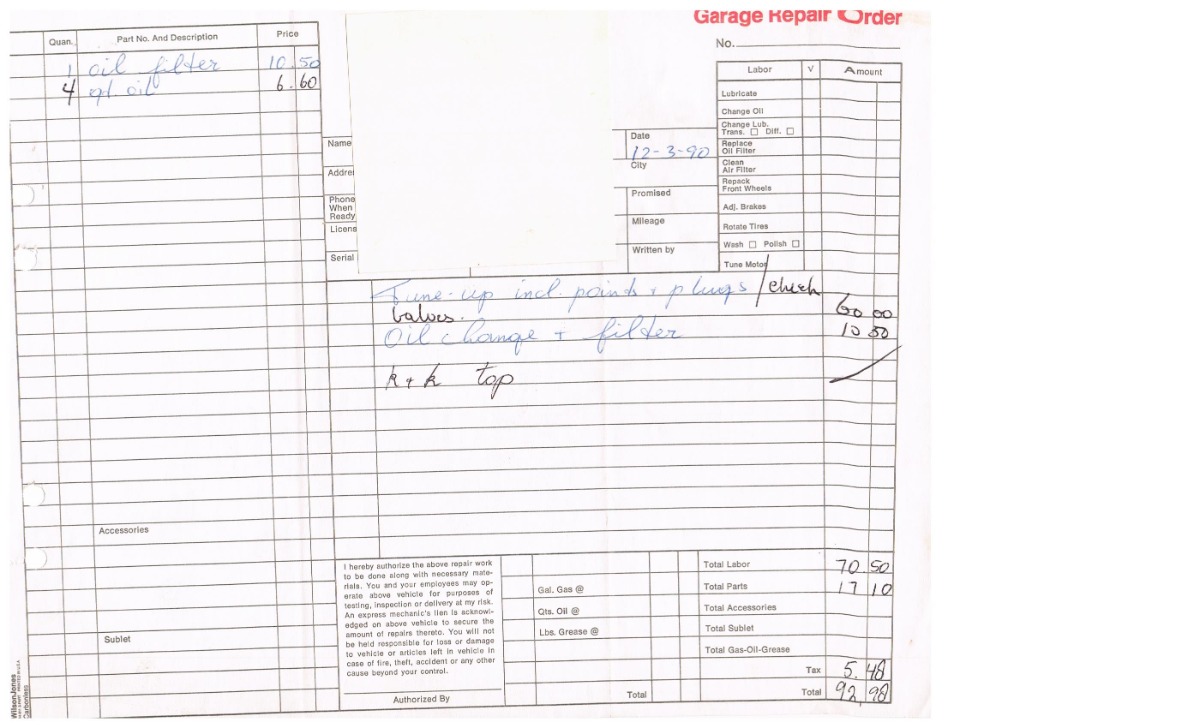 Garage Repair Order
No.
Quan. Part No. And Description Price
1 oil filter 10.50
4 qt. oil 6.60
Labor V Amount
Lubricate
Change Oil
Change Lub.
Trans. ☐ Diff. ☐
Replace
Oil Filter
Clean
Air Filter
Repack
Front Wheels
Adj. Brakes
Rotate Tires
Wash ☐ Polish ☐
Tune Motor
Name
Addre
Phone
When
Ready
Licens
Serial
Date
12-3-90
City
Promised
Mileage
Written by
Tune-up incl. points + plugs / check
valves. 60 00
Oil change + filter 10 50
k + k top
Accessories
Sublet
I hereby authorize the above repair work
to be done along with necessary mate-
rials. You and your employees may op-
erate above vehicle for purposes of
testing, inspection or delivery at my risk.
An express mechanic's lien is acknowl-
edged on above vehicle to secure the
amount of repairs thereto. You will not
be held responsible for loss or damage
to vehicle or articles left in vehicle in
case of fire, theft, accident or any other
cause beyond your control.
Authorized By
Gal. Gas @
Qts. Oil @
Lbs. Grease @
Total
Total Labor 70 50
Total Parts 17 10
Total Accessories
Total Sublet
Total Gas-Oil-Grease
Tax 5.48
Total 92,98
WilsonJones
Carbonless